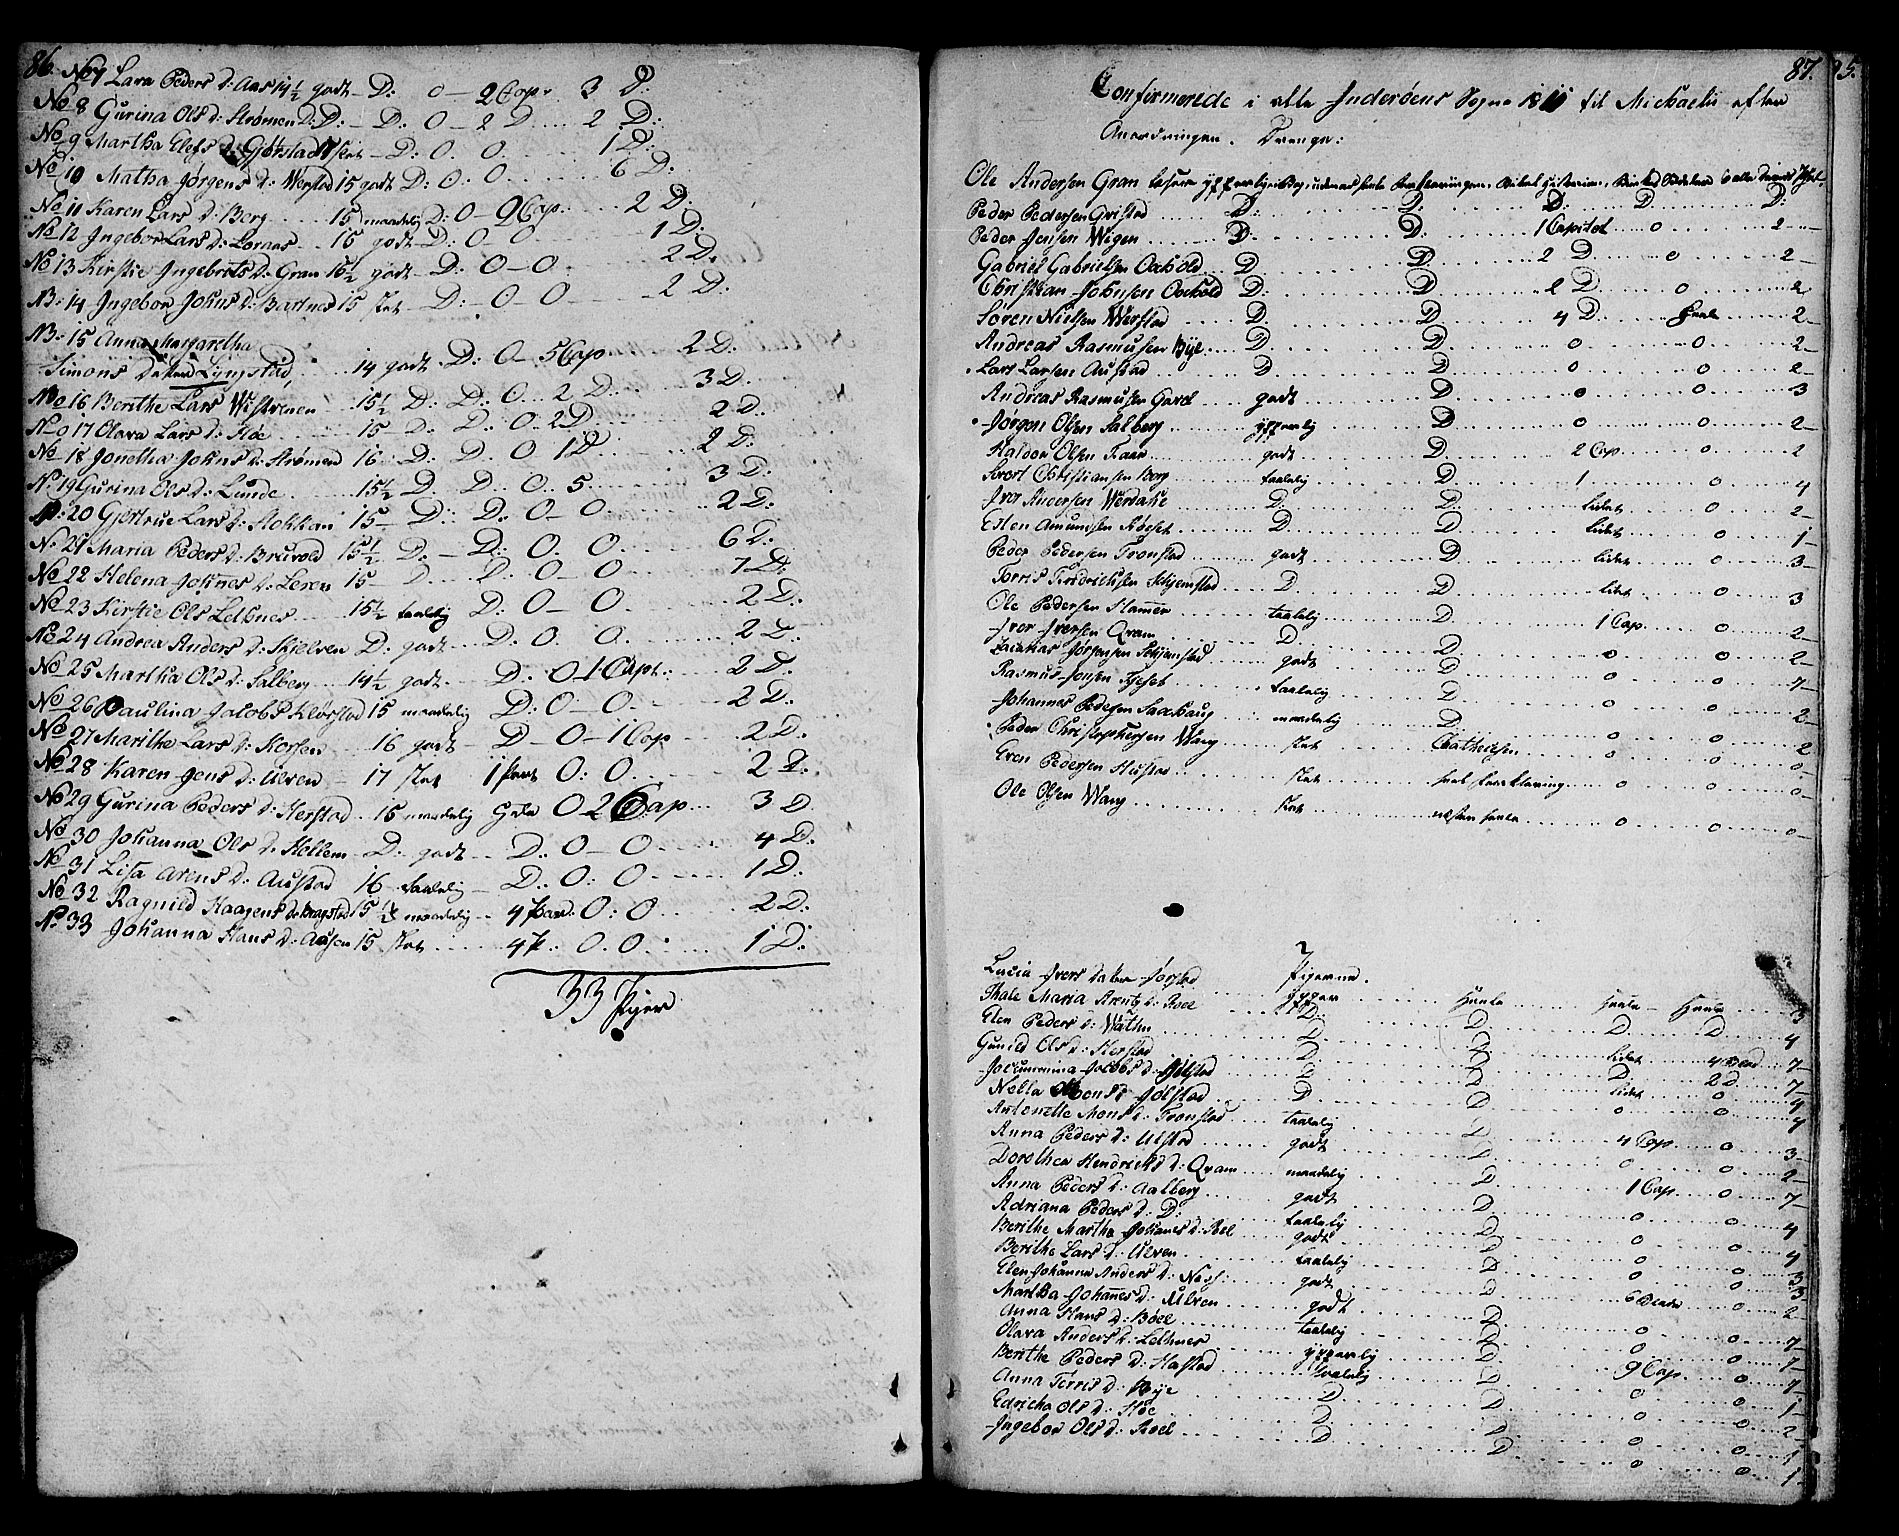 86.
No 7 Lara Peders d: Aas 14½ godt – D: 0 – 2 Cap. 3 D:
No 8 Gurina Ols d: Strømen D: D: – D: 0 – 2 D. 2 D:
No 9 Martha Elefs d: Gjørstad slet – D: 0. 0. 1 D:
No 10 Matha Jørgens d: Werstad 15 godt D: 0: 0 6 D:
No 11 Karen Lars d: Berg 15 maadelig D: 0 – 9 Cap: 2 D:
No 12 Ingebor Lars d: 15 godt – D: 0 – 0 1 D:
No 13 Kirstie Ingebrets d: Gran 15½ godt – D: 0 – 0. 2 D.
N3: 14 Ingebor Johns d: Bartnes 15 slet – D: – 0 – 0 2 D:
N3: 15 Anna Margaretha
Simons datter Lyngstad, 14 godt D: 0 – 5 Cap 2 D:
No 16 Berithe Lars Wistvenen 15½ D: D: 0 2 D: 3 D.
No 17 Olava Lars d: Høe 15 – D: D: 0 – 2 D 2 D:
No 18 Jonetha Johns d: Strømen 16. D: D. 0 1 D. 2 D:
No 19 Gurina Ols d: Lunde 15½ D. D. 0. 5. 3 D:
No: 20 Gjertrue Lars d: Stokkan 15 – D: D: 0 – 0 2 D:
No 21 Maria Peders d: Bruvold 15½ D: – D: 0. 0. 6 D:
No 22 Helena Johnes d: Leren 15 – D D: 0 – 0 7 D:
No 23 Kirstie Ols Lethnes 15½ taalelig D: 0 – 0. 2 D:
No 24 Andrea Anders d: Skjelven D: godt D: 0. 0. 2 D.
No 25 Martha Ols d: Salberg 14½ godt D: 0 – 1 Capt: 2 D:
No 26 Paulina Jacobs Klørstad 15 maadelig D: 0 – 0. 2 D:
No 27 Marithe Lars d: Korsen 16 godt D – 0 – 1 Cap 2 D:
No 28 Karen Jens d: Ulven – 17 slet 1 Part 0: 0. 2 D:
No 29 Gurina Peders d: Herstad 15 maadelig 0 2 6 Cap 3 D.
No 30 Johanna Ols d: Hellem D: godt D: 0 – 0 4 D:
No 31 Lisa Arens d: Austad 16 – taalelig – D: 0: 0 1 D:
No 32 Ragnild Haagens d: Bragstad 15½ maadelig 4 Part. 0: 0 2 D:
No 33 Johanna Hans d: Aasen 15 slet 4 P: 0. 0. 1 D:
33 Piger
87.
95.
Confirmerede i alle Inderøens Sogne 1811 til Michaelii efter
Anordningen. Drenge:
Ole Andersen Gran
Peder Pedersen Gvistad D: D: D: D. D:
Peder Jensen Wigen D. D. 1 Capitel 0 2 –
Gabriel Gabrielsen Oxhold D D. 2 D 0 2 –
Christian Johnsen Oxhold D: D 2 D. 0 2
Søren Nielsen Werstad D: D 4 D. Heele 2 –
Andreas Rasmusen Bye D D. 0 0 2 –
Lars Larsen Austad D D 0 0 2 –
Andreas Rasmusen Gard godt D 0 0 3
Jørgen Olsen Salberg ypperlig D 0 0 2 –
Haldor Olsen Raae godt D. 2 Cap. 0 2
Sivert Christiansen Berg taalelig D 1 0 4
Iver Andersen Werdahl D: D: lidet 0 2 –
Esten Amundsen Røeset D D lidet 0 1 –
Peder Pedersen Tronstad godt D lidet 0 3
Torris Fredrichsen Schjemstad D D lidet 0 3
Ole Pedersen Hammer taalelig D. 1 Cap. 0 2 –
Iver Iversen Qvam D D 0 0 2 –
Zacarias Jørgensen Schjemstad godt D 0 0 7 –
Rasmus Jonsen Kjeset taalelig D 0 0 2 –
Johannes Pedersen Saxhaug maadelig D 0 0 2
Peder Christophersen Wang slet Cathechisen 0 0 0 –
Even Pedersen Hustad slet heel Forklaring 0 0 0 –
Ole Olsen Wang slet næsten heele 0 0 0 –
Pigerne.
Lucia Ivers datter Jørstad ypper Heele Heele – Heele 3
Thale Maria Arentz d: Roel D: D D. D 4
Elen Peders d: Wathn D. D lidet 4 Blad 7 –
Gunild Ols d: Herstad D D D 2 D. 7 –
Jocummina Jacobs d: Jølstad D D lidet 0 4
Nella Mons d: Jølstad D D 0 0 4
Antonette Mons d: Tronstad taalelig D 4 Cap. 0 3 –
Anna Peders d: Ulstad godt D 0 0 2 –
Dorothea Hendrichs d: Qvam maadelig D 1 Cap. 0 7 –
Anna Peders d: Aalberg godt D 0 0 4
Adriana Peders d: D: taalelig D 0 0 4
Berithe Martha Johanes d: Roel godt D 0 0 3
Berithe Lars d: Ulven taalelig D 6 Blade 0 3
Elen Johanna Anders d: Næss: godt D 0 0 2
Martha Johannes d: Ulven godt D 0 0 7 –
Anna Hans d: Bøel taalelig D 9 Cap. 0 7 –
Olava Anders d: Lethnes ypperlig D 0 0 7 –
Berithe Peders d: Hastad taalelig D 0 0 1 –
Anna Torris d: Bye D D 0 0 2 –
Edricha Ols d: Høe D D 0 0 1
Ingebor Ols d: Roel D D 0 0 1 –